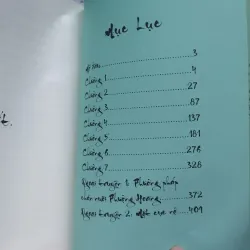 Mục Lục
Chương 1 4
Chương 2 27
Chương 3 87
Chương 4 137
Chương 5 181
Chương 6 276
Chương 7 328
Ngoại truyện 1: Phương pháp
chăn nuôi Phượng Hoàng 372
Ngoại truyện 2: 409